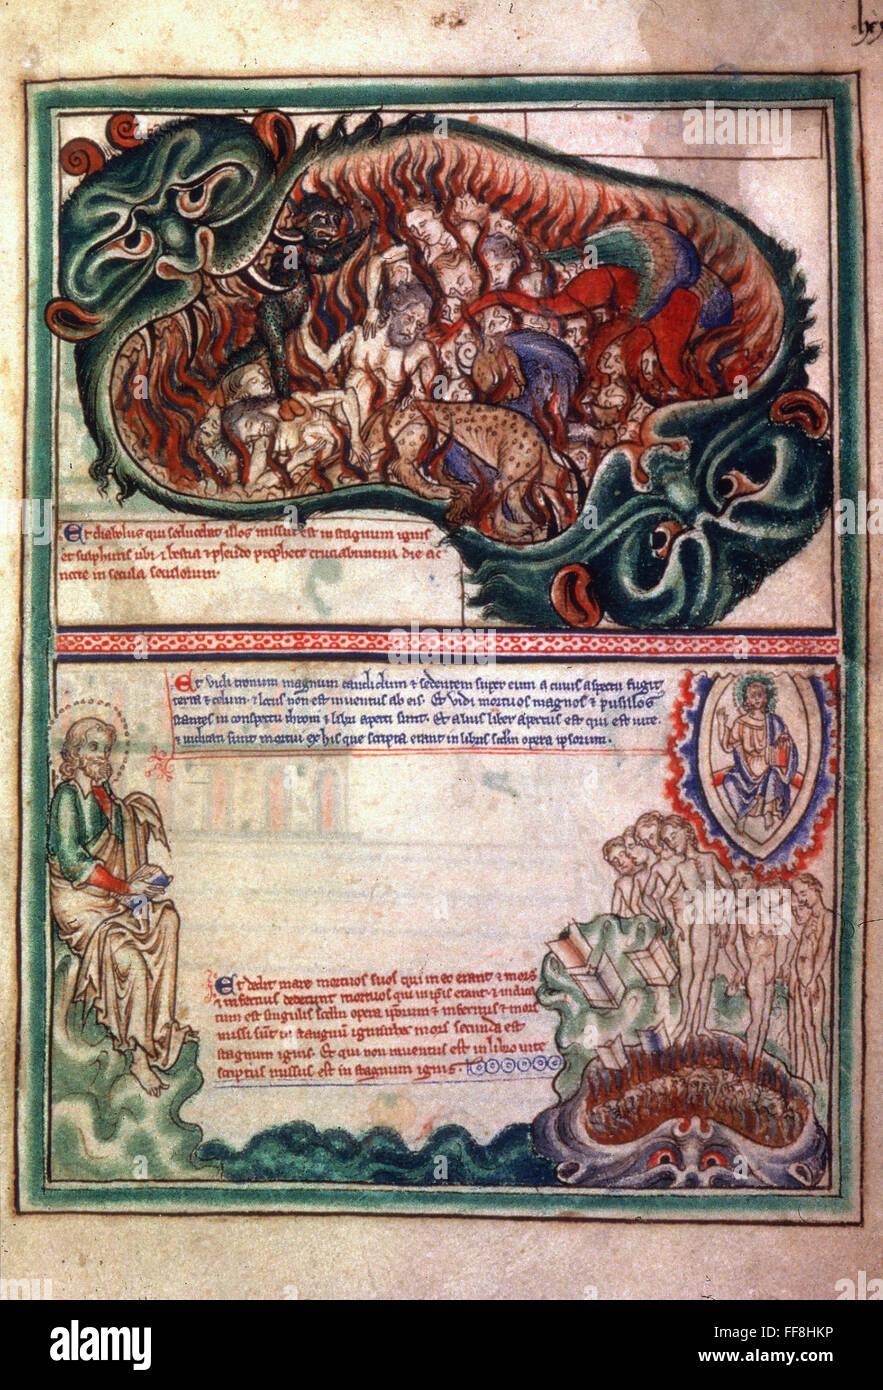 lxx
Et diabolus qui seducebat illos missus est in stagnum ignis
et sulphuris ubi & bestia & pseudo prophete cruciabuntur die ac
nocte in secula seculorum.
Et vidi tronum magnum candidum & sedentem super eum a cuius aspectu fugit
terra & celum. & locus non est inventus ab eis. Et vidi mortuos magnos & pusillos
stantes in conspectu throni & libri aperti sunt. Et alius liber apertus est qui est vite.
& iudicati sunt mortui ex his que scripta erant in libris secundum opera ipsorum.
Et dedit mare mortuos suos qui in eo erant & mors
& infernus dederunt mortuos qui in ipsis erant & iudica
tum est singulis secundum opera ipsorum & infernus & mors
missi sunt in stagnum ignis hec mors secunda est
stagnum ignis. Et qui non inventus est in libro vite
scriptus missus est in stagnum ignis.
alamy
Image ID: FF8HKP
www.alamy.com